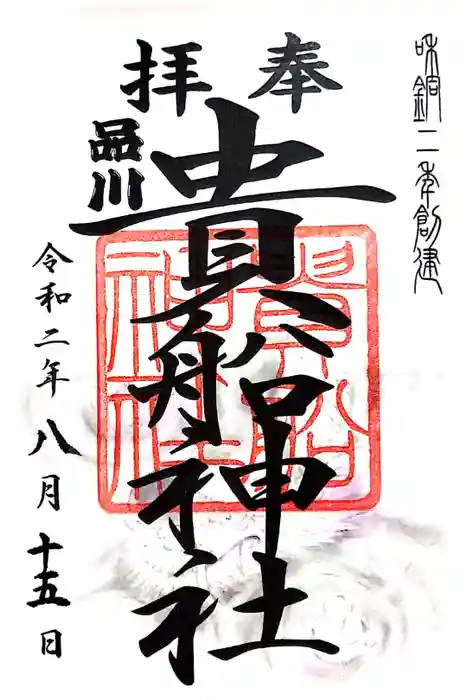 和銅二年創建
奉拝
品川
貴船神社
貴船
神社
令和二年八月十五日